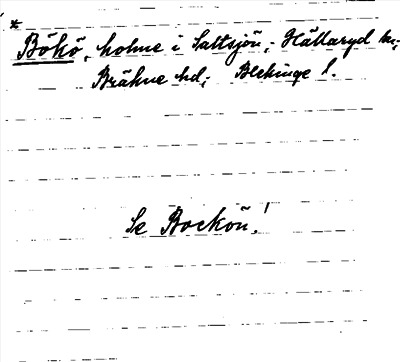 * Bökö, holme i Saltsjön, Hällaryd sn,
Bräkne hd, Blekinge l.
Se Bockön!